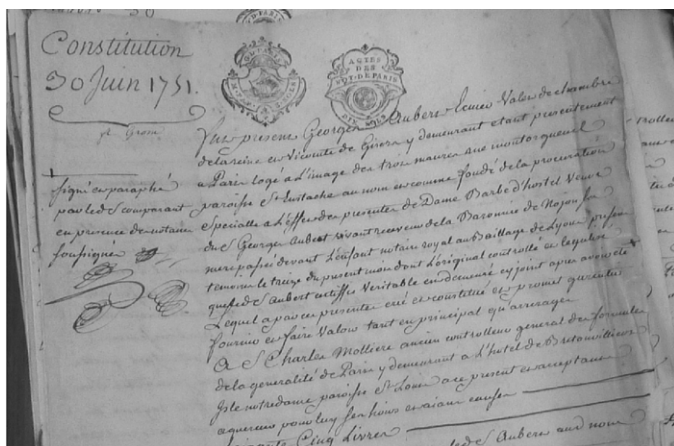 Constitution
30 Juin 1751.
ft Grosse
signé et paraphé
par led. S. comparant
en presence des notaires
soussignés
ACTES
DES
NOT. DE PARIS
DIX SOLS
Fut present Georges Aubert Ecuier Valet de chambre
de la reine en Vicomté de demeurant etant presentement
a Paris logé a L'image des trois maures rue montorgueil
paroisse St Eustache au nom et comme fondé de la procuration
Specialle a L'effet des presentes de Dame Barbe d'hostel Veuve
du S. Georges Aubert vivant receveur de la Baronnie de
mere passée devant notaire royal au Bailliage de
temoins le treize du present mois dont L'original controllé et legalisé
que led. S. Aubert certiffie Veritable est demeuré cy joint apres avoir été
Lequel a par ces presentes créé et constitué et promet garentir
fournir et faire Valoir tant en principal qu'arrerages
A S. Charles Molliere ancien controlleur general des formules
de la generalité de Paris y demeurant a L'hotel de Bretonvilliers
Isle notredame paroisse St Louis a ce present et acceptant
acquereur pour luy ses hoirs et aians cause
Cinq Livres
led. S. Aubert aud. nom